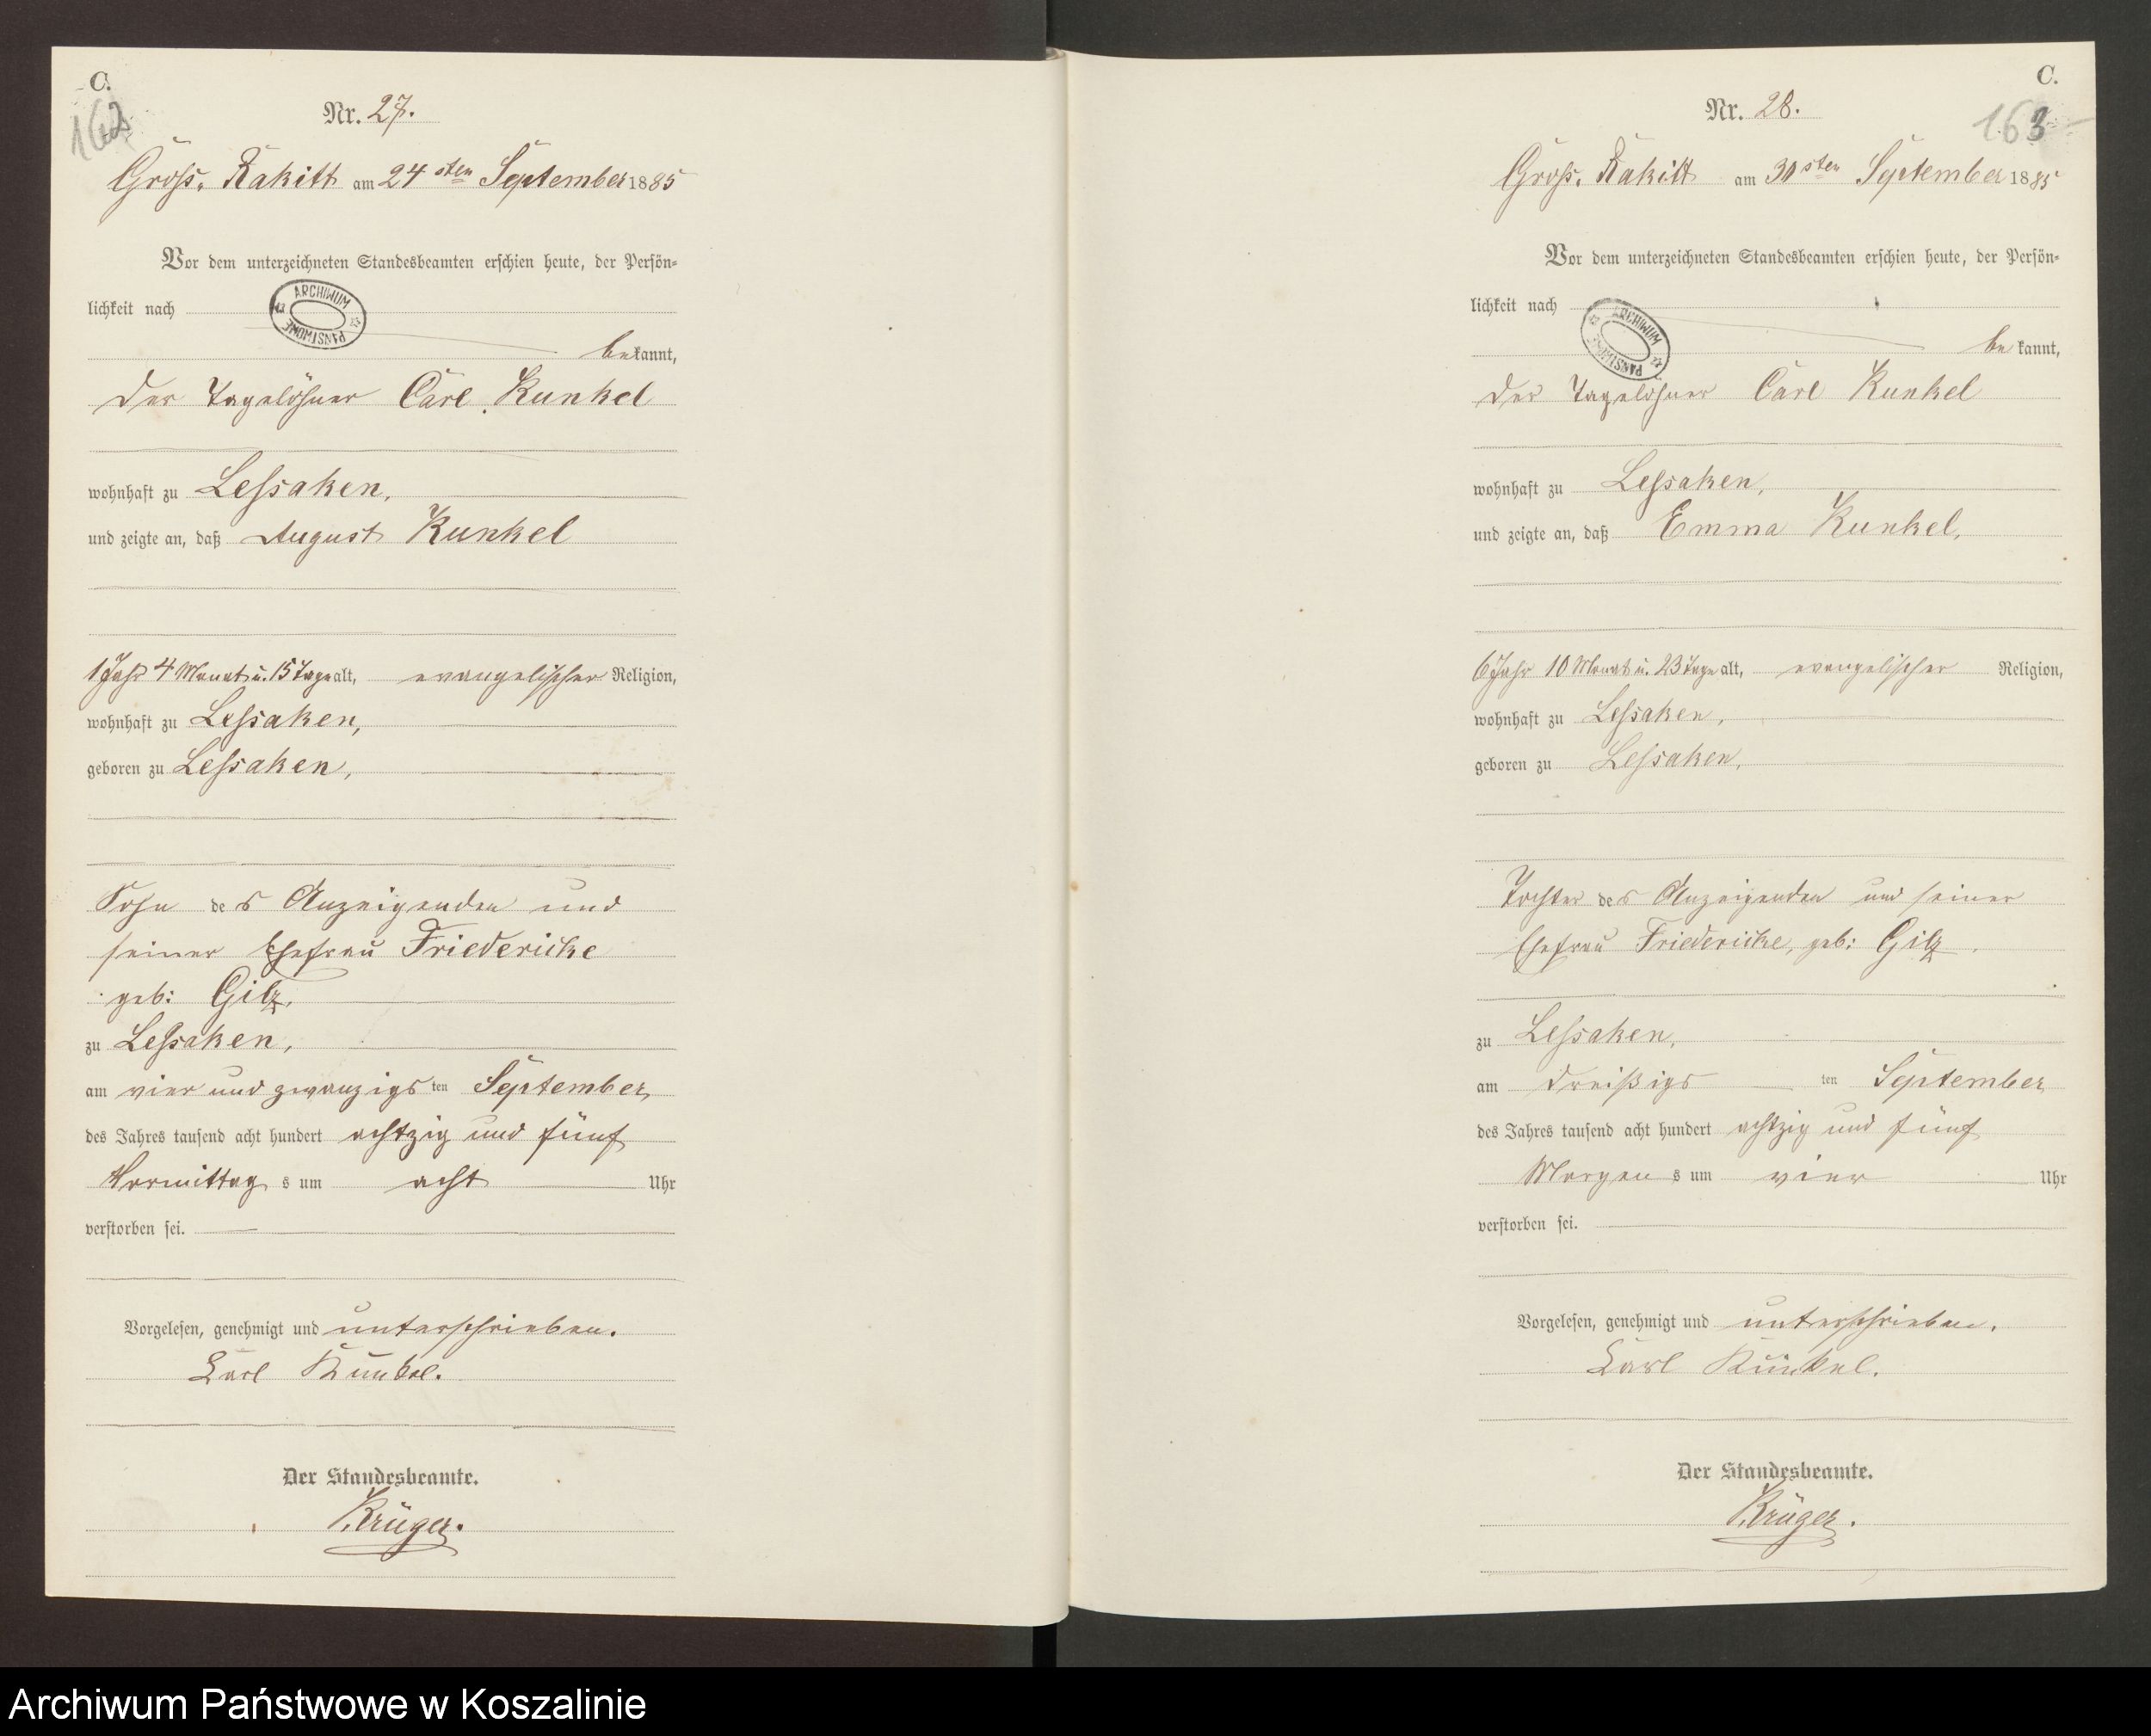 C.
162
Nr. 27.
Gross. Rakitt am 24 sten September 1885
Vor dem unterzeichneten Standesbeamten erschien heute, der Persön-
lichkeit nach
ARCHIWUM PAŃSTWOWE
bekannt,
der Tagelöhner Carl Kunkel
wohnhaft zu Lessaken,
und zeigte an, daß August Kunkel
1 Jahr 4 Monat u. 15 Tage alt, evangelischer Religion,
wohnhaft zu Lessaken,
geboren zu Lessaken,
Sohn des Anzeigenden und
seiner Ehefrau Friedericke
geb: Gilz,
zu Lessaken,
am vier und zwanzigsten September
des Jahres tausend acht hundert achtzig und fünf
Vormittags um acht Uhr
verstorben sei.
Vorgelesen, genehmigt und unterschrieben.
Carl Kunkel.
Der Standesbeamte.
Krüger.
C.
163
Nr. 28.
Gross. Rakitt am 30 sten September 1885
Vor dem unterzeichneten Standesbeamten erschien heute, der Persön-
lichkeit nach
ARCHIWUM PAŃSTWOWE
bekannt,
der Tagelöhner Carl Kunkel
wohnhaft zu Lessaken,
und zeigte an, daß Emma Kunkel,
6 Jahr 10 Monat u. 23 Tage alt, evangelischer Religion,
wohnhaft zu Lessaken,
geboren zu Lessaken,
Tochter des Anzeigenden und seiner
Ehefrau Friedericke, geb: Gilz.
zu Lessaken,
am dreißigsten September
des Jahres tausend acht hundert achtzig und fünf
Morgens um vier Uhr
verstorben sei.
Vorgelesen, genehmigt und unterschrieben.
Carl Kunkel.
Der Standesbeamte.
Krüger.
Archiwum Państwowe w Koszalinie